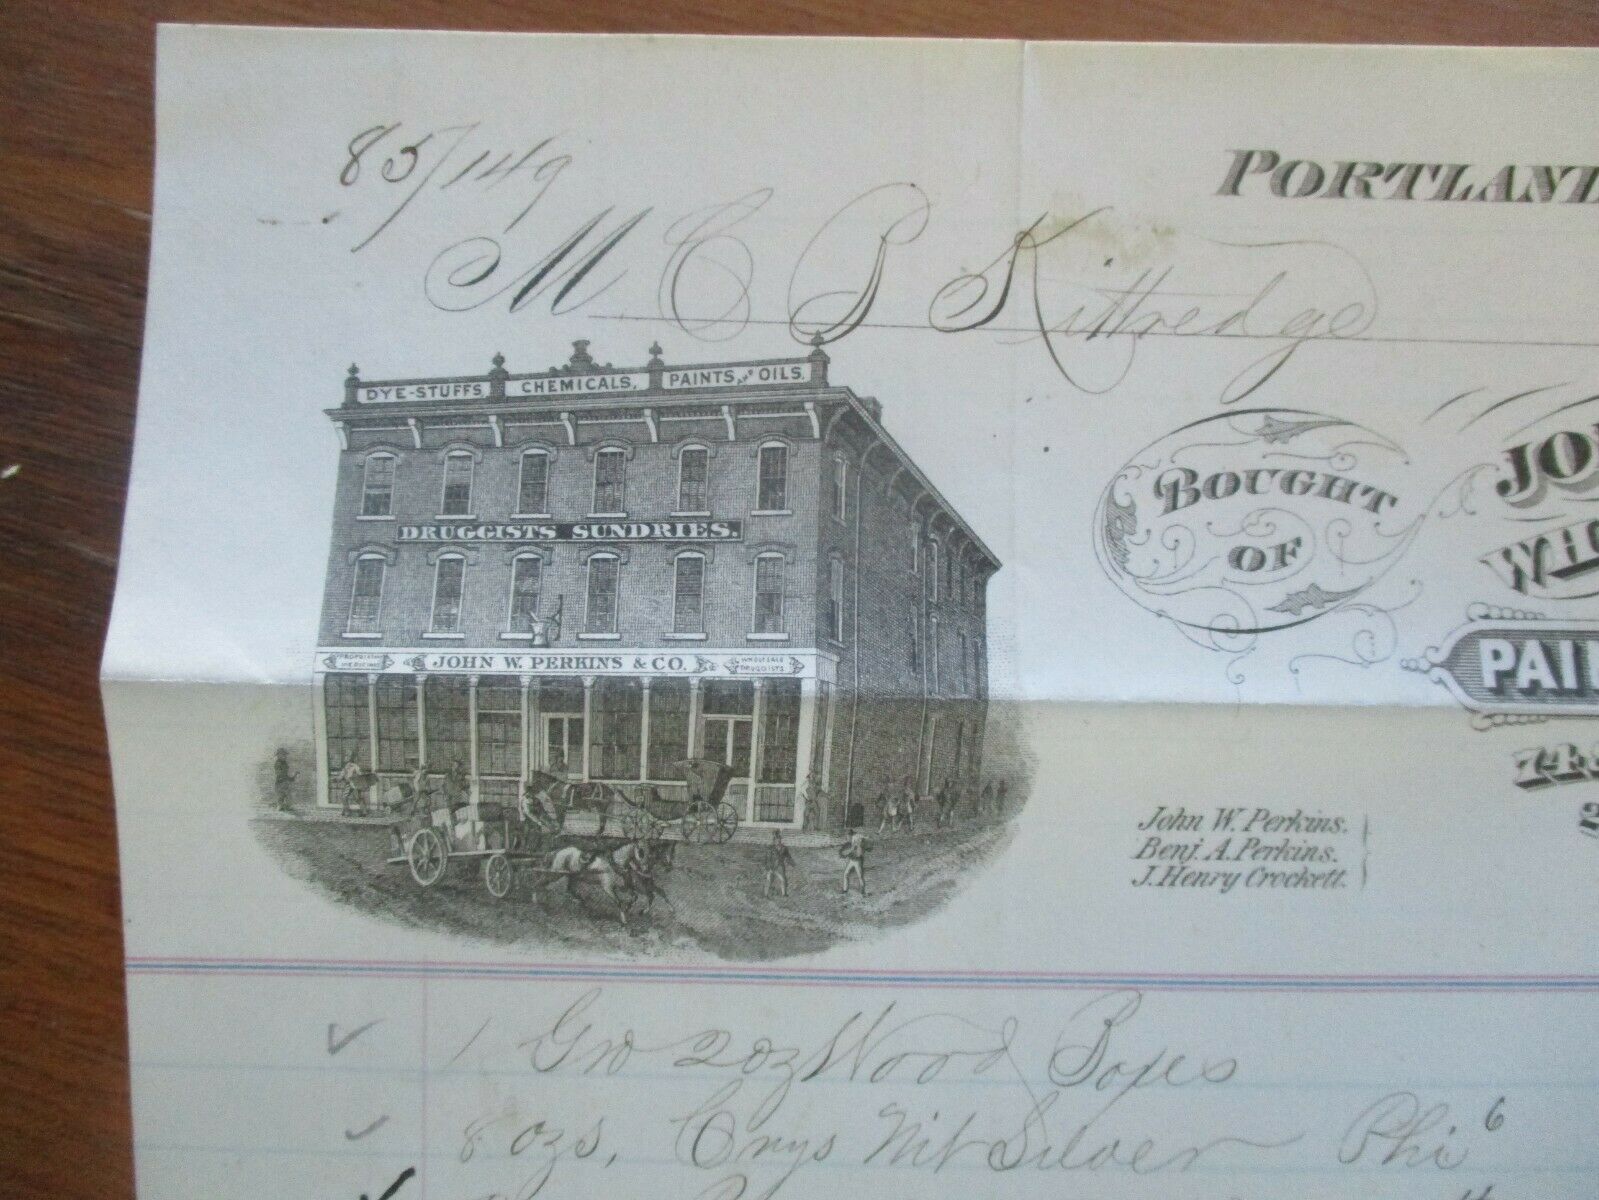 85/149
PORTLAND
M C P Kittredge
DYE-STUFFS, CHEMICALS, PAINTS AND OILS,
DRUGGISTS SUNDRIES.
JOHN W. PERKINS & CO.
WHOLESALE DRUGGISTS
BOUGHT
OF
PAI
John W. Perkins.
Benj. A. Perkins.
J. Henry Crockett.
1 Gro 2 oz Wood Boxes
8 ozs, Crys Nit Silver Phi 6